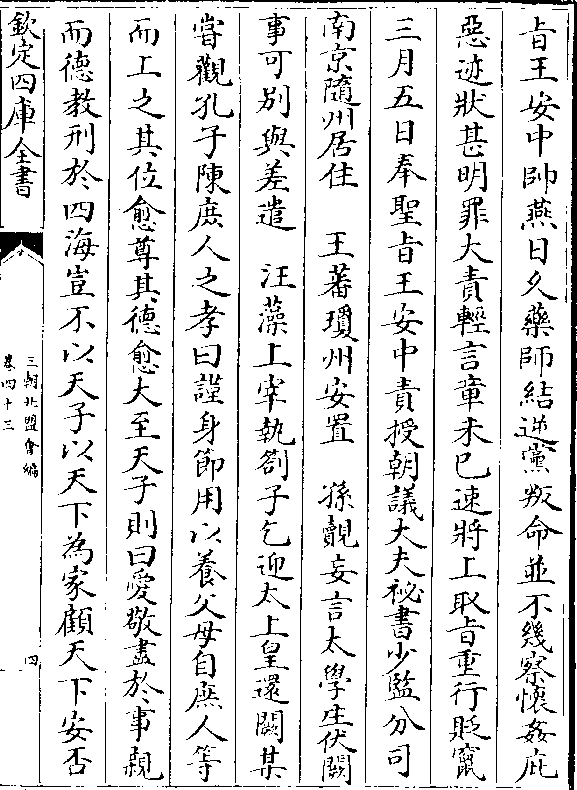 㫖王安中帥燕日久藥師結逆黨叛命並不幾察懷姦庇
惡迹狀甚明罪大責輕言章未已速將上取㫖重行貶竄
三月五日奉聖㫖王安中責授朝議大夫祕書少監分司
南京隨州居住　王蕃瓊州安置　孫覿妄言太學生伏闕
事可別與差遣　汪藻上宰執劄子乞迎太上皇還闕某
嘗觀孔子陳庶人之孝曰謹身節用以養父母自庶人等
而上之其位愈尊其德愈大至天子則曰愛敬盡於事親
而德教刑於四海豈不以天子以天下為家顧天下安否
欽定四庫全書
三朝北盟會編
卷四十三
四